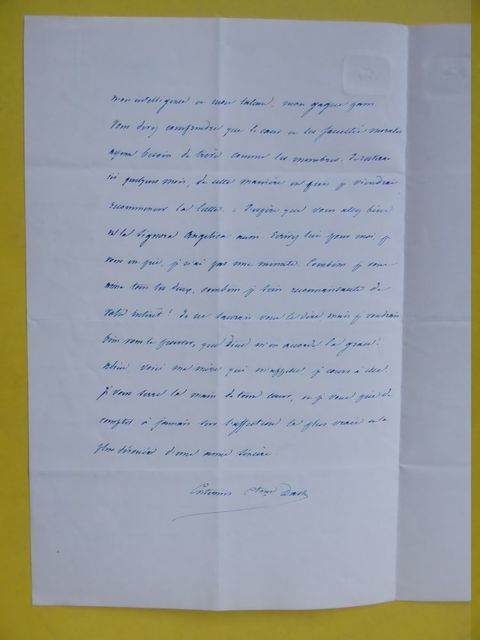 mon intelligence et mon talent, mon gagne pain.
Vous devez comprendre que le cœur et les facultés morales
ayent besoin de trève comme les membres. Je resterai
ici quelques mois, de cette manière et puis j'y viendrai
recommencer la lutte. J'espère que vous allez bien
et la Signora Angelica aussi. Ecrivez lui pour moi, je
vous en prie, je n'ai pas une minute. Combien je vous
aime tous les deux, combien je suis reconnaissante de
votre intérêt! Je ne saurais vous le dire mais je voudrais
bien vous le prouver, que Dieu m'en accorde la grace!
Adieu voici ma mère qui m'appelle je cours à elle.
Je vous serre la main de tout cœur, et je vous prie de
compter à jamais sur l'affection la plus vraie et la
plus dévouée d'une amie sincère
Dash